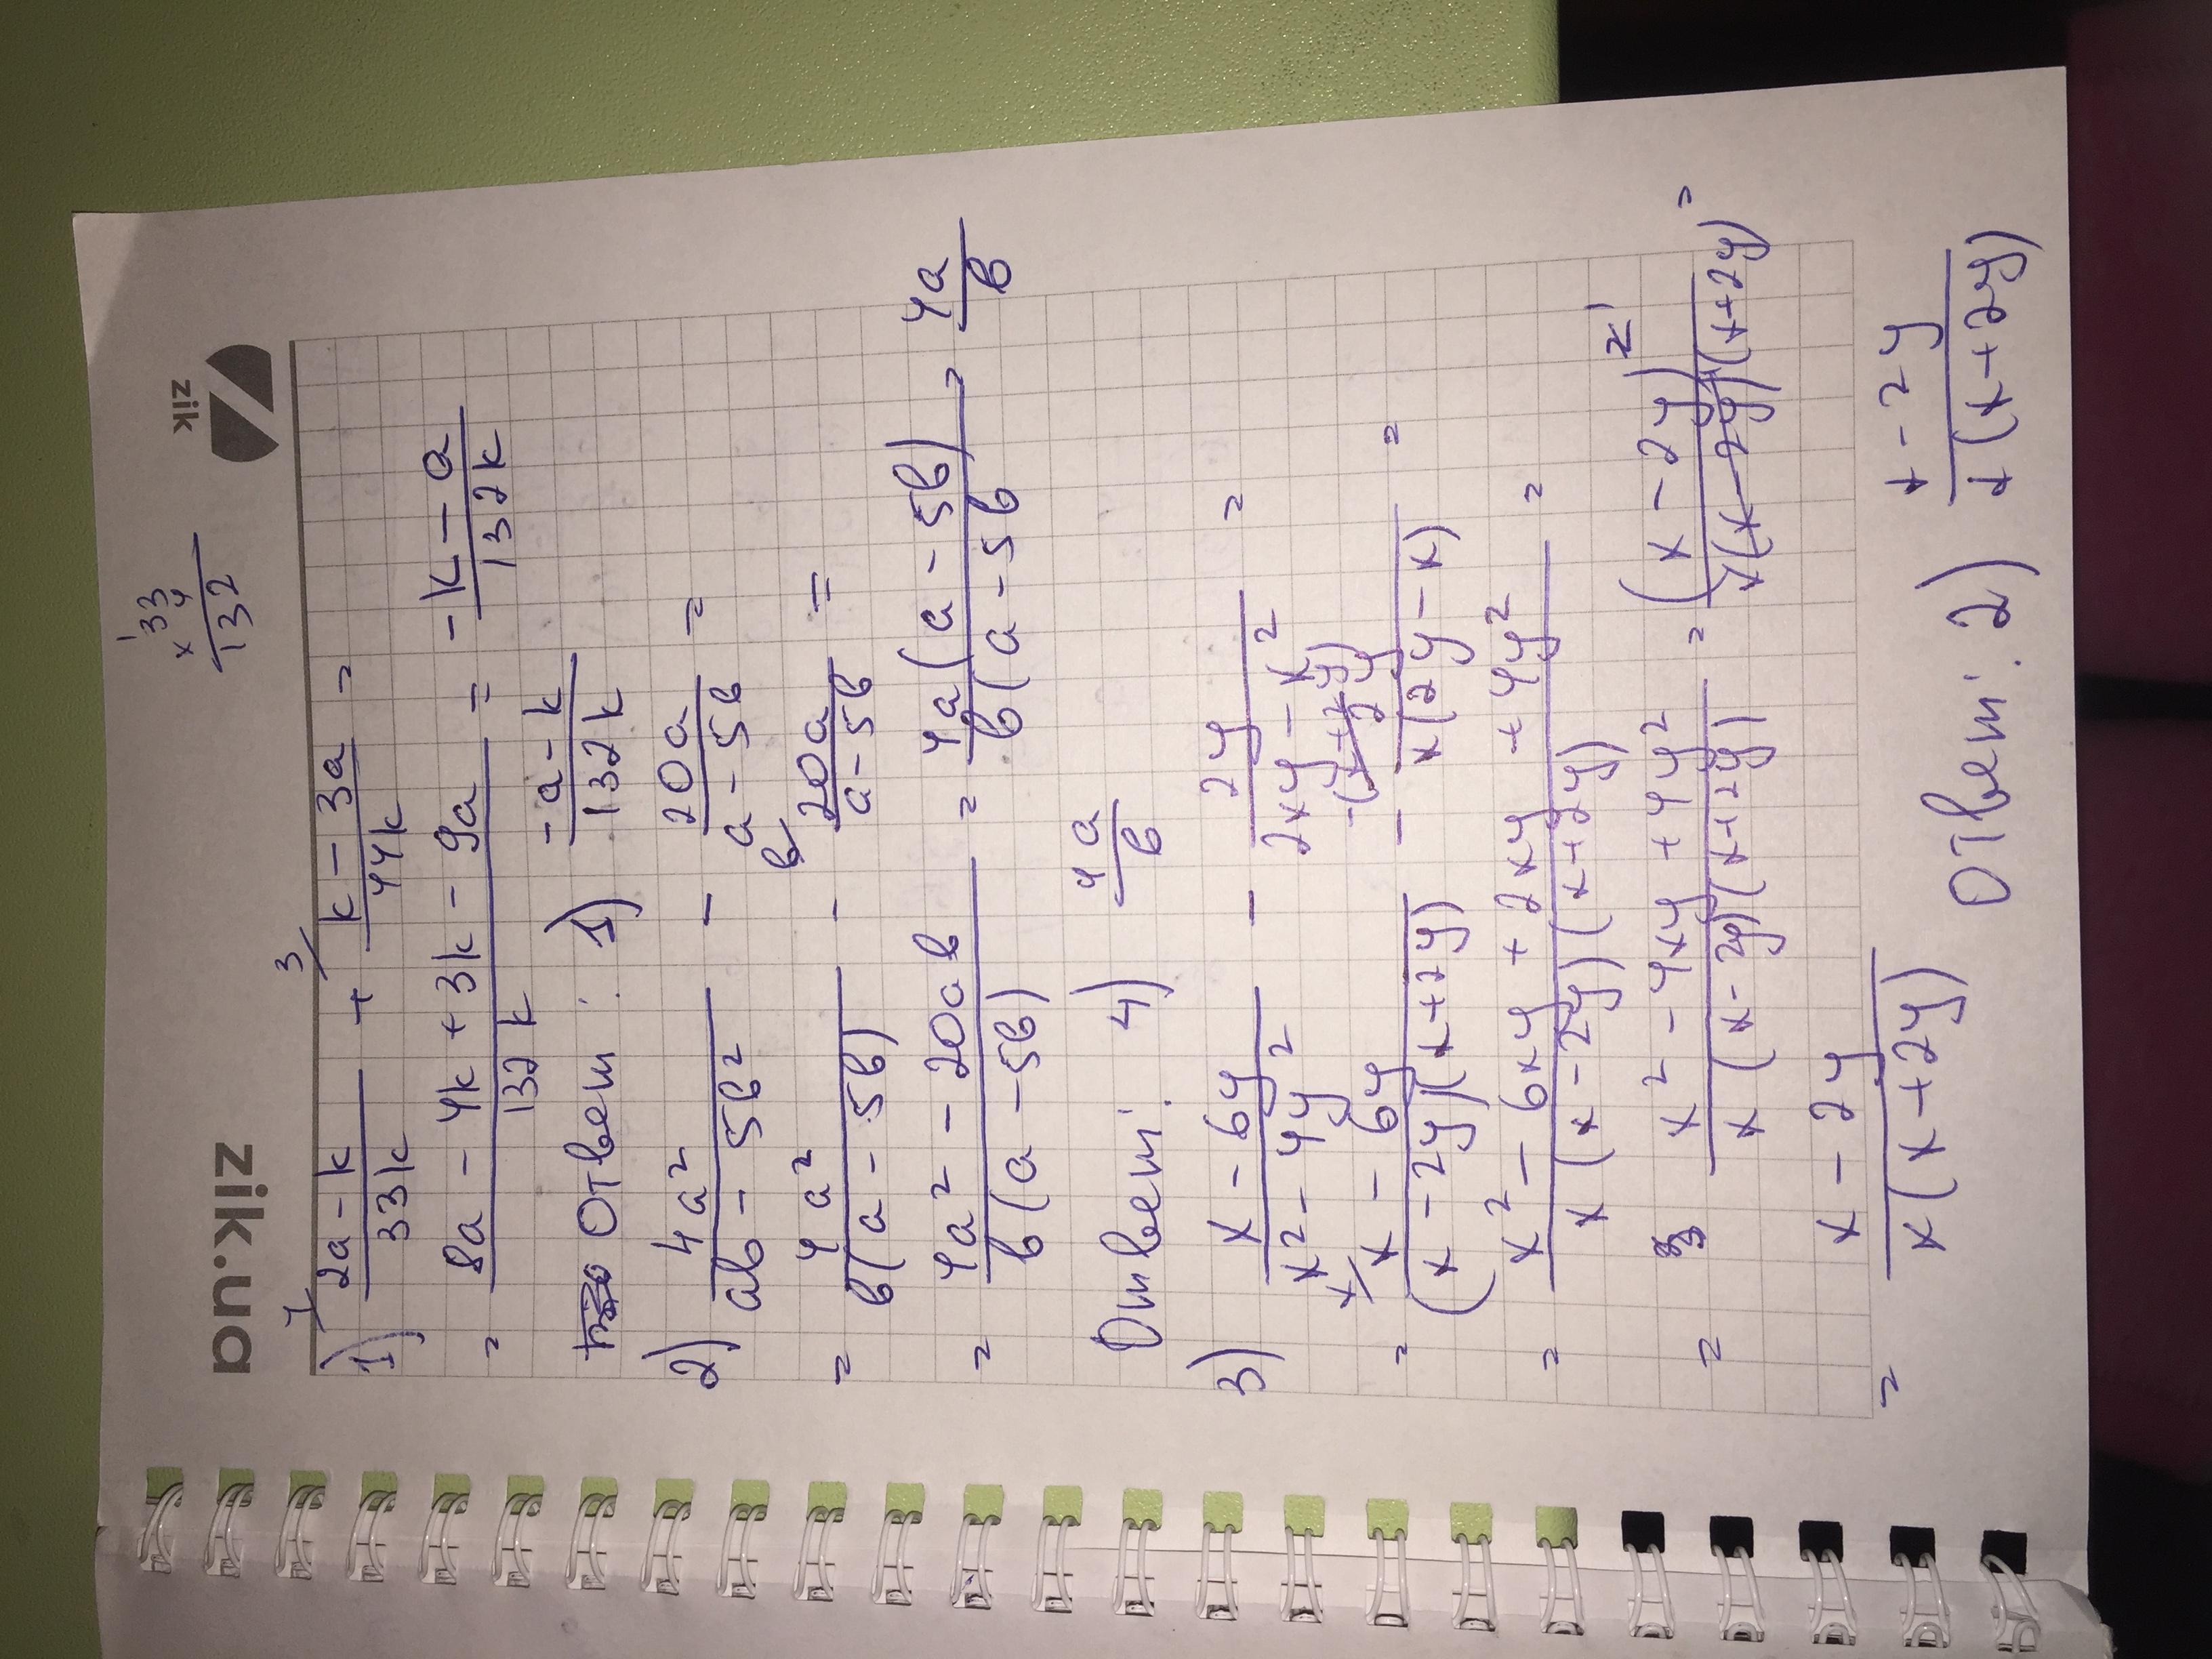 zik.ua
zik
1
×33
4
132
1) 4/ (2a-k)/(33k) + 3/ (k-3a)/(44k) =
= (8a - 4k + 3k - 9a)/(132k) = (-k-a)/(132k)
Ответ: 1) (-a-k)/(132k)
2) 4a²/(ab-5b²) - 20a/(a-5b) =
= 4a²/(b(a-5b)) - b/ 20a/(a-5b) =
= (4a² - 20ab)/(b(a-5b)) = 4a(a-5b)/(b(a-5b) = 4a/b
Ответ: 4) 4a/b
3) (x-6y)/(x²-4y²) - 2y/(2xy-x²) =
= x/ (x-6y)/((x-2y)(x+2y)) - -(x+2y)/ 2y/(x(2y-x)) =
= (x² - 6xy + 2xy + 4y²)/(x(x-2y)(x+2y)) =
= (x² - 4xy + 4y²)/(x(x-2y)(x+2y)) = (x-2y)²/(x(x-2y)(x+2y)) =
= (x-2y)/(x(x+2y)) Ответ: 2) (x-2y)/(x(x+2y))